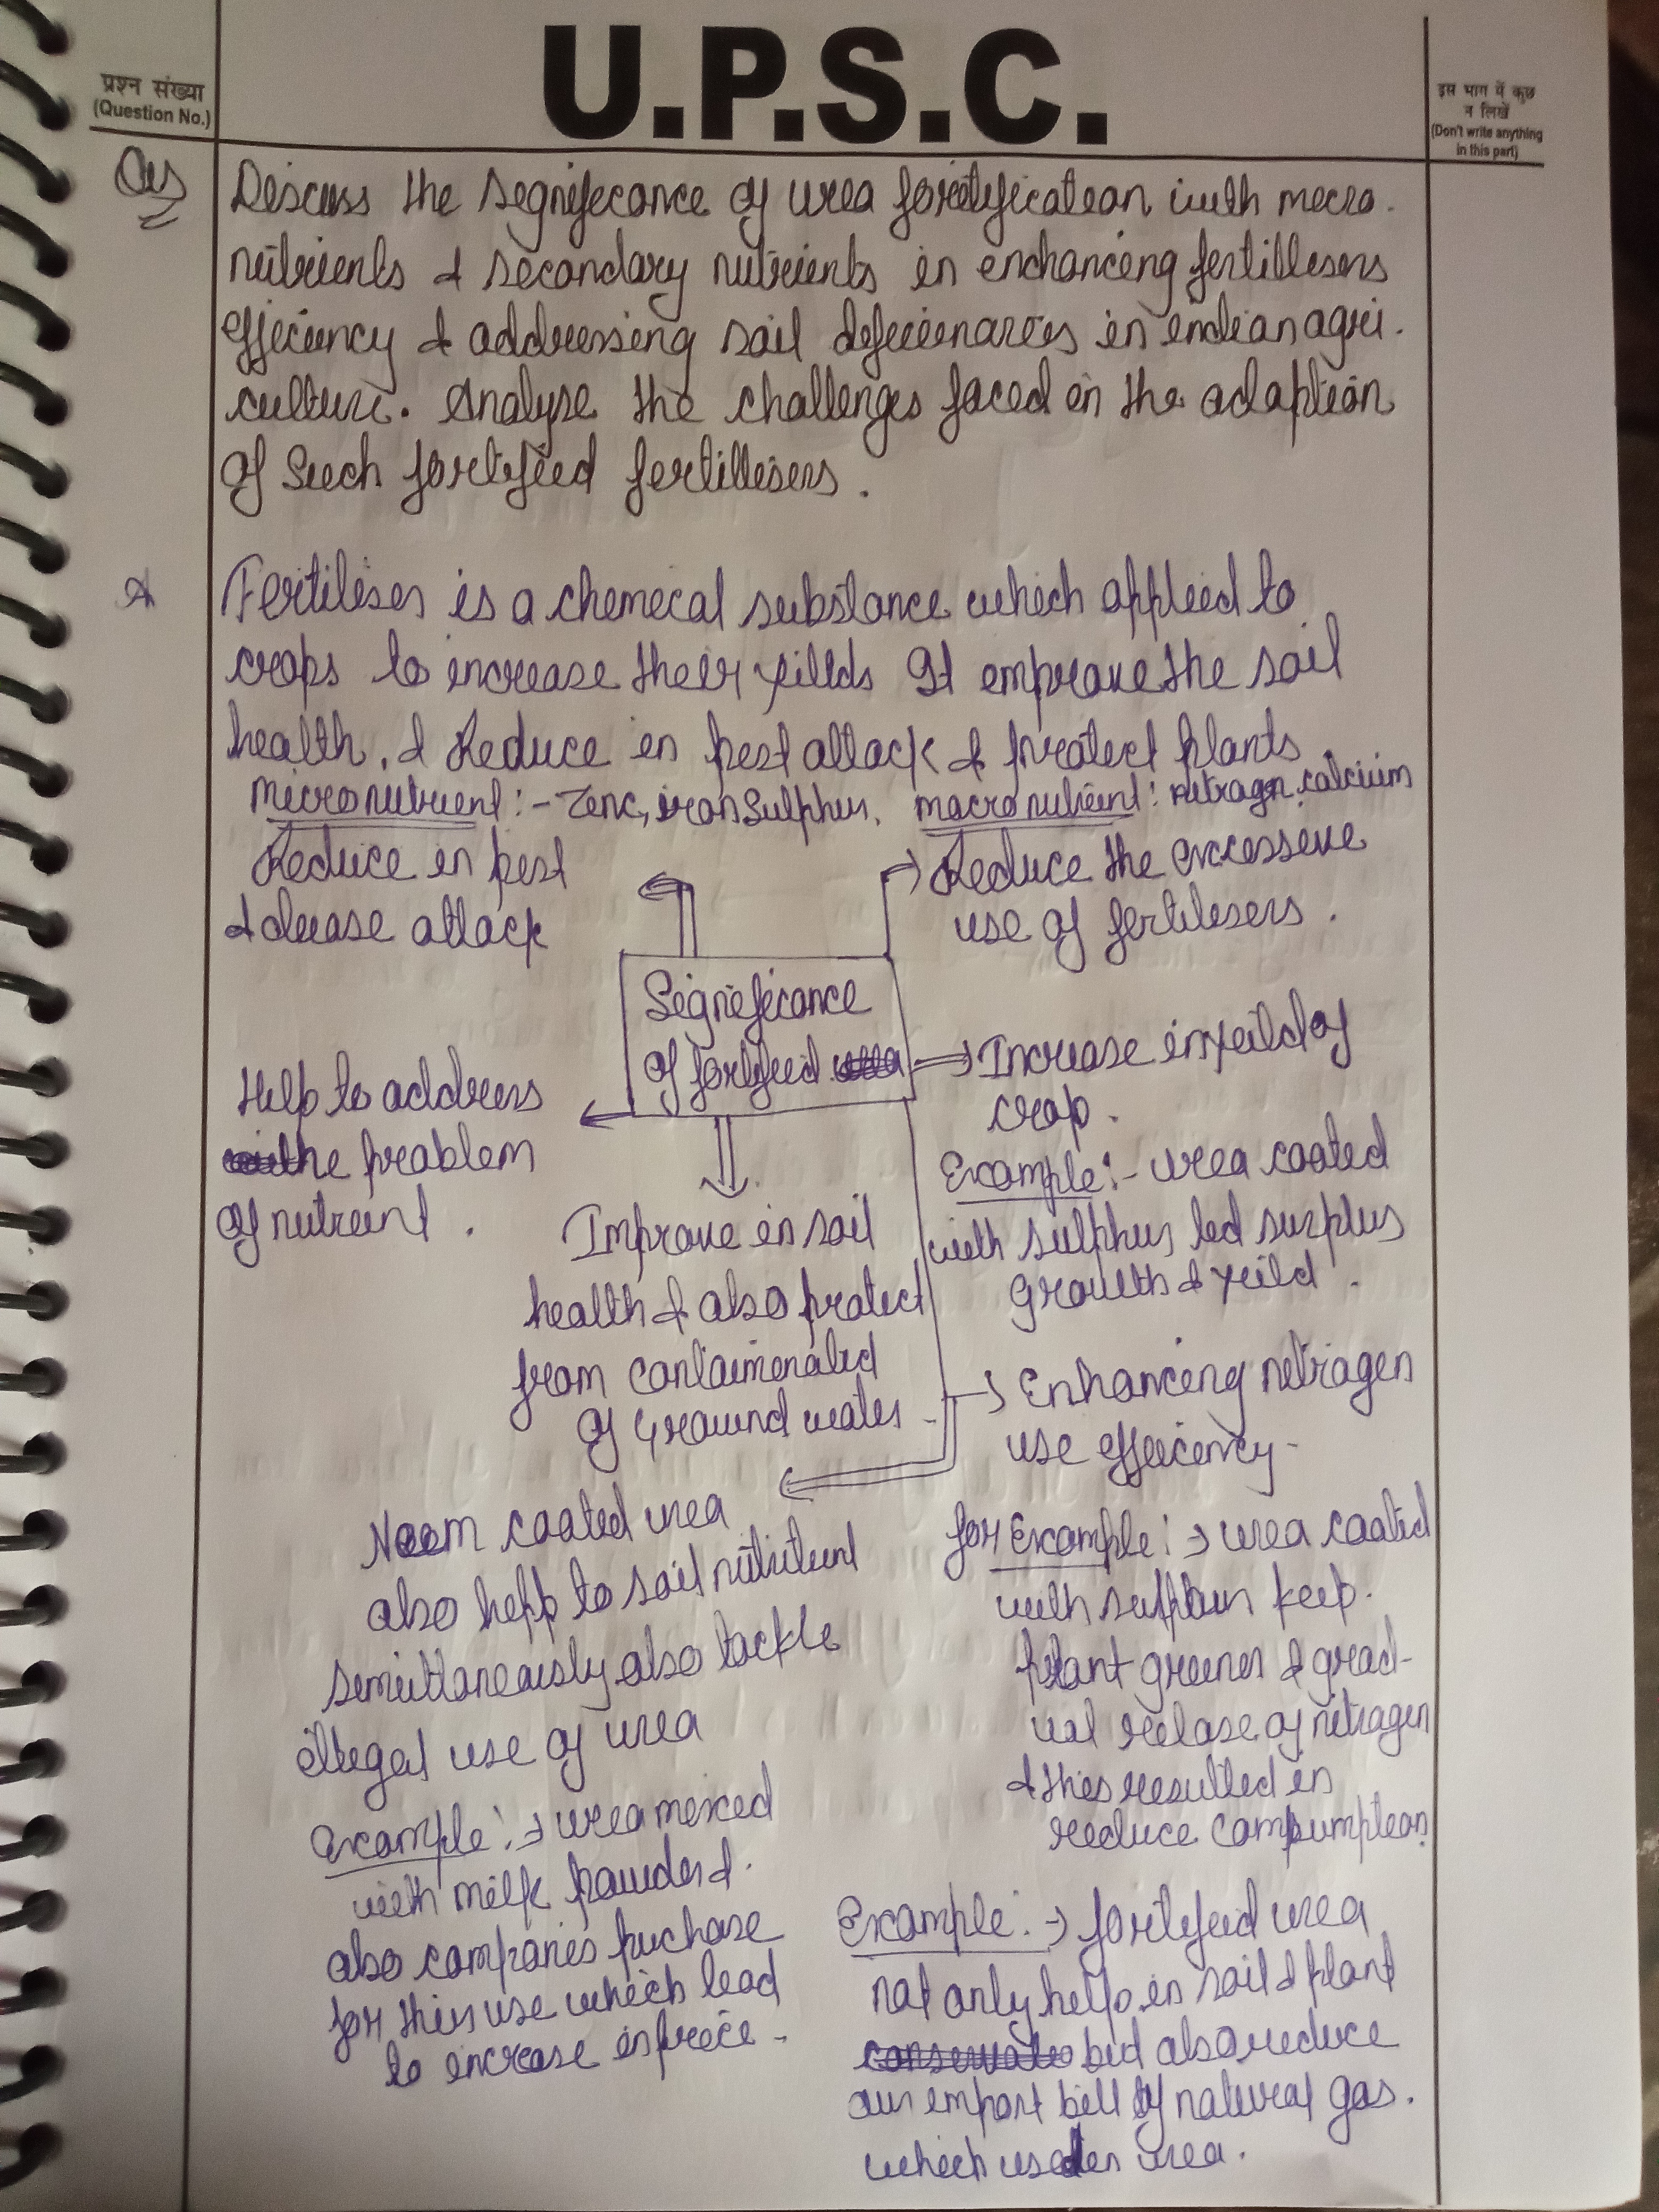 प्रश्न संख्या
(Question No.)
U.P.S.C.
इस भाग में कुछ
न लिखें
(Don't write anything
in this part)
Discuss the significance of urea fortification with micro.
nutrients & secondary nutrients in enchancing fertillisers
efficiency & addressing soil deficienaries in indian agri.
culture. Analyse the challenges faced in the adaption
of such fortified fertillisers.
A
Fertiliser is a chemical substance which applied to
crops to increase their yillds It improve the soil
health, & Reduce in pest attack & protect plants
micronutrient:- Zinc, iron Sulphur. macronutrient: nitrogn, calcium
Reduce in pest
& diease attack
Reduce the excessive
use of fertilisers.
Significance
of fortifeed urea
Increase in yeild of
crop.
Help to address
the problem
of nutrient.
Example:- urea coated
with sulphur led surplus
growth & yeild.
Improve in soil
health & also protect
from contaiminated
of Ground water
Enhancing nitrogen
use effeicency
Neem coated urea
also help to soil nutrient
simultaneously also tackle
illegal use of urea
for Example: → urea coated
with sulphur keep.
plant greener & grad-
ual relase of nitrogen
& this resulted in
reduce
Example: → urea mixed
with milk powder &.
also companies puchase
for this use which lead
to increase in price -
Example: → fortifeed urea
not only help in soil & plant
but also reduce
our import bill of natural gas.
which used in urea.